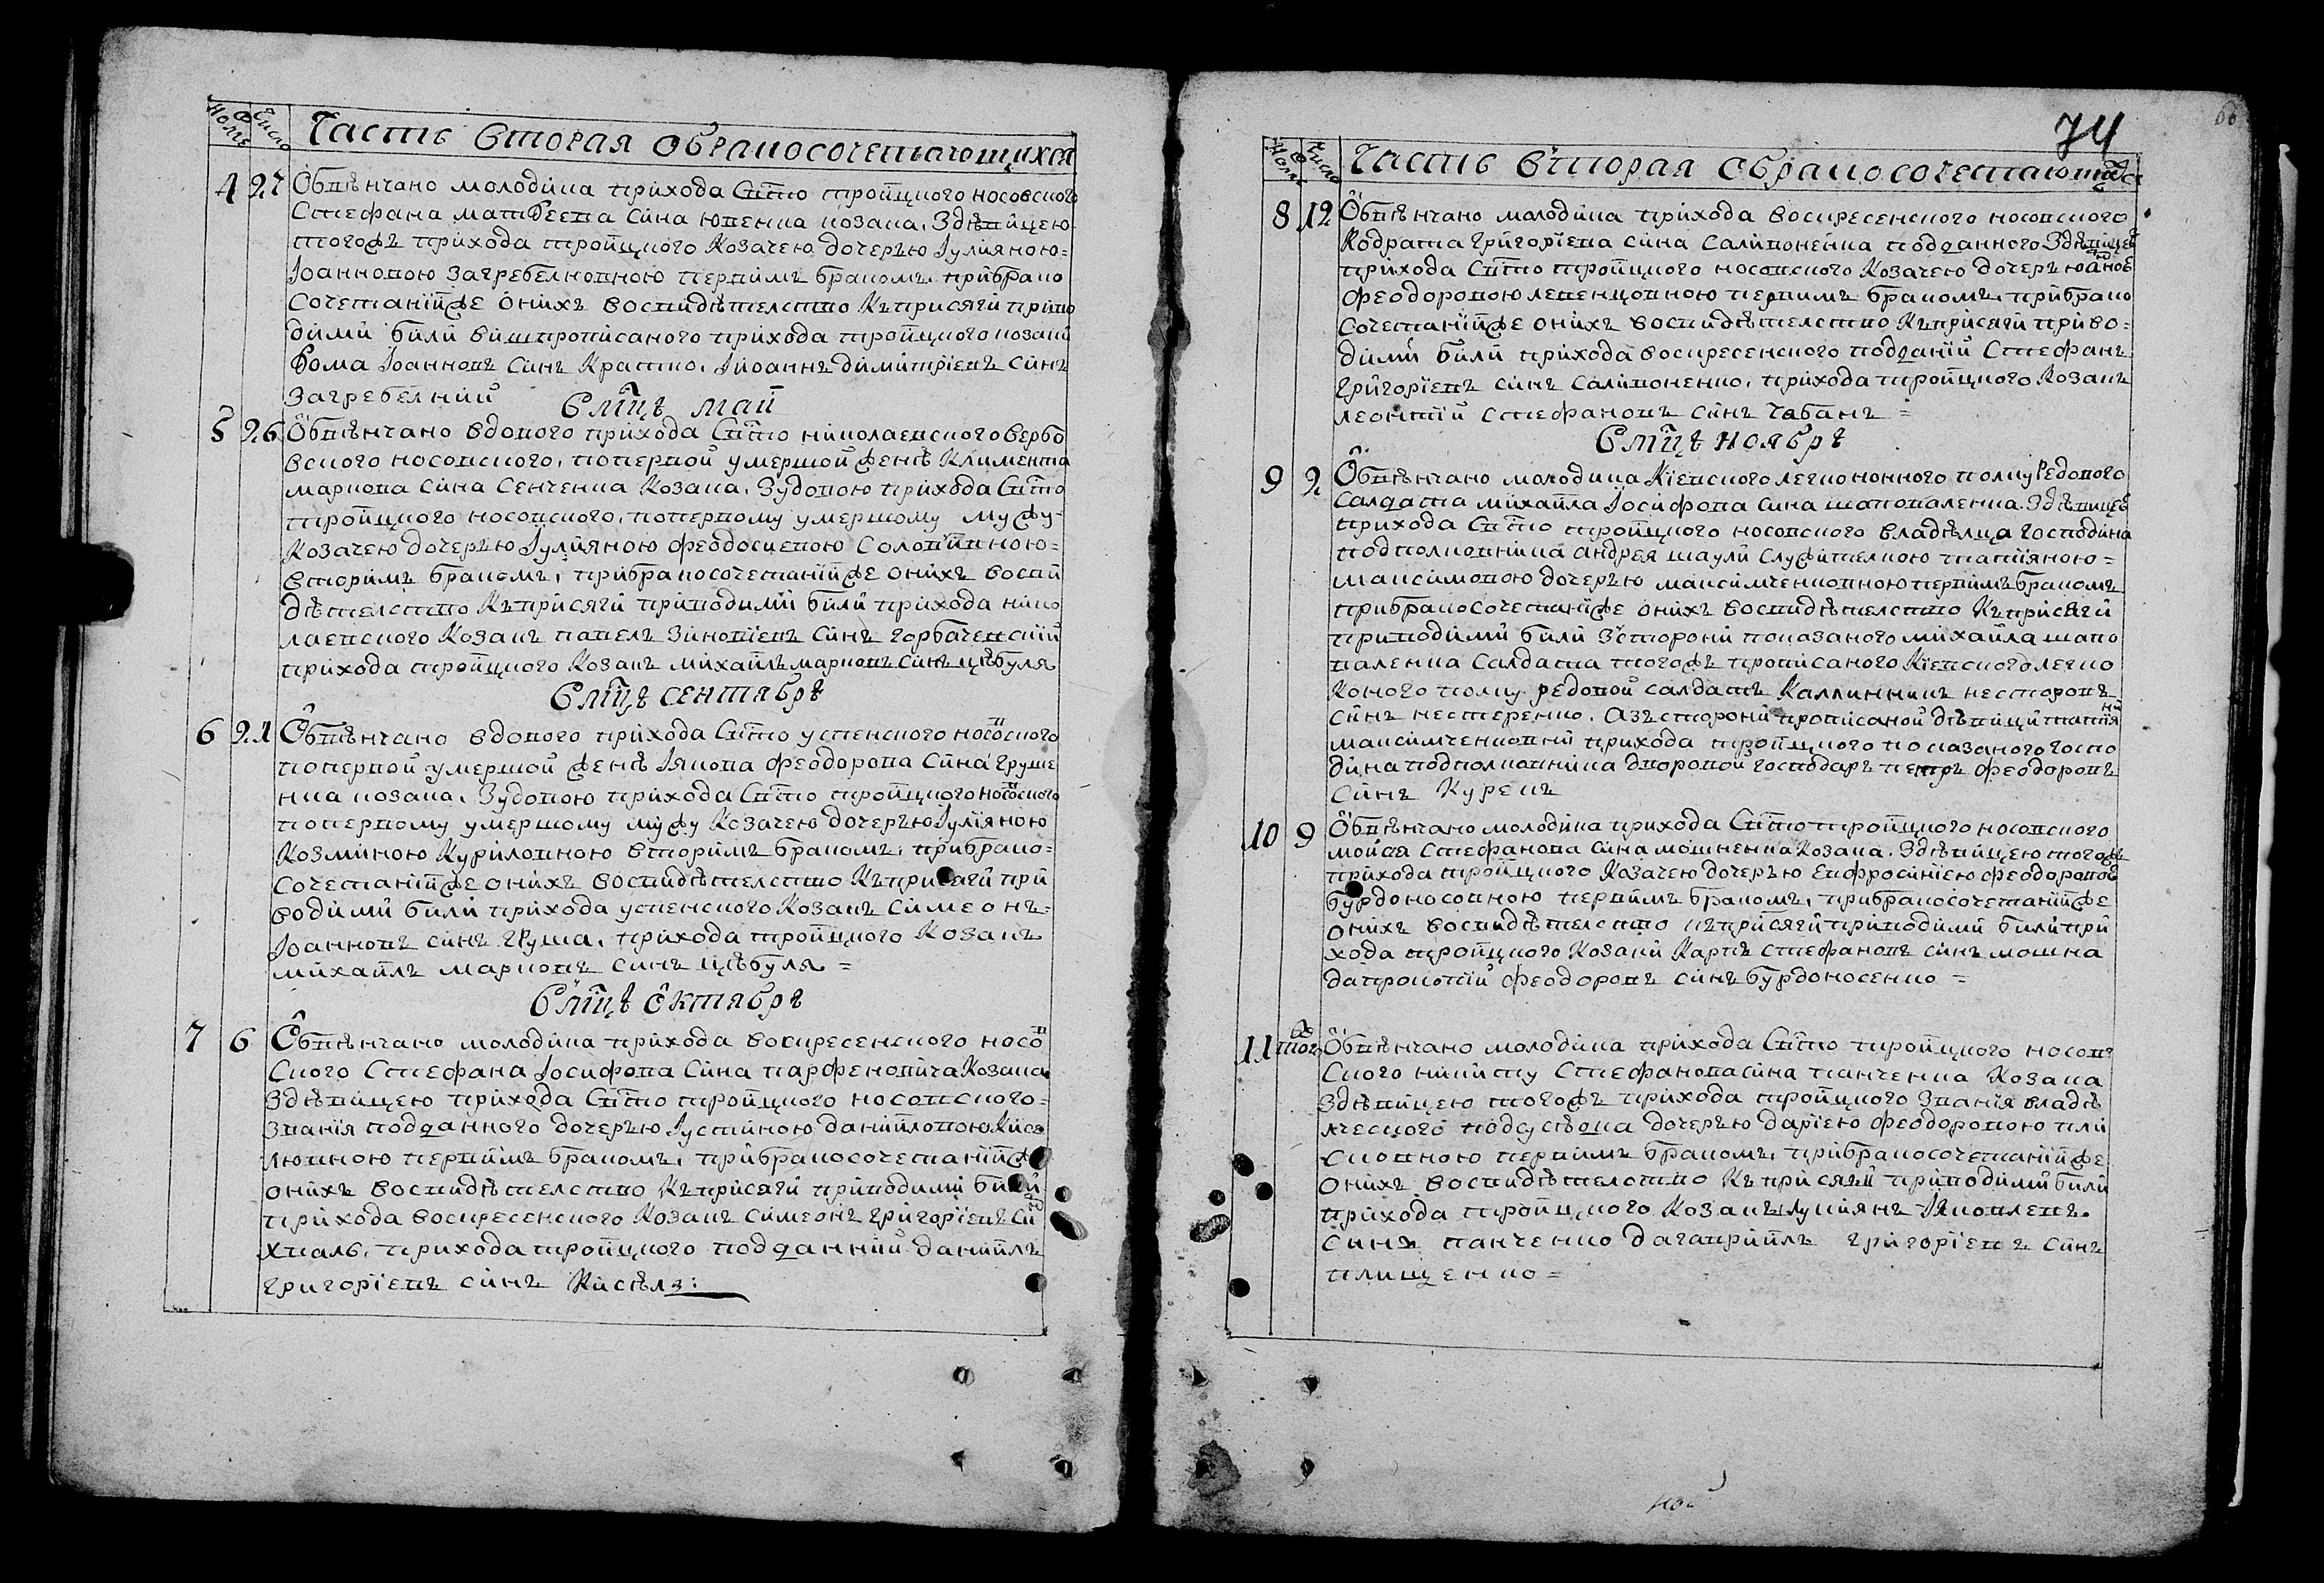 Номѣ Число Часть вторая Обракосочетающихся
4 27 Обвѣнчано молодика прихода Свто тройцкого носовского
Стефана матвеева сина ювенка козака, Здѣвицею
тогожъ прихода тройцкого Козачею дочерью Іулияною=
Іоанновою Загребелновною первимъ бракомъ. прибрако
Сочетанійже онихъ восвидѣтелство Къприсяги приво
дими били вишпрописаного прихода тройцкого козаки
Фома Іоанновъ Синъ Кратко, Иоаннъ димитріевъ Синъ
Загребелний
Вмцѣ май
5 26 Обвѣнчано вдового прихода Свто николаевского вербо
вского носовского, попервой умершой женѣ Климента
маркова Сина Сенченка Козака, Зудовою прихода Свто
тройцкого носовского, попервому умершому мужу-
Козачею дочерью Іулияною Феодосиевою Соловйивною=
вторимъ бракомъ, прибракосочетанийже онихъ восви
дѣтелство Къприсяги приводими били прихода нико
лаевского Козакъ павелъ Зиновиевъ Синъ горбачевский
прихода тройцкого Козакъ михайлъ марковъ Синъ цѣбуля
Вмцѣ сентябрѣ
6 21 Обвѣнчано вдового прихода Свто успенского носовского
попервой умершой женѣ Іякова Феодорова Сина груше
нка козака, Зудовою прихода Свто тройцкого носовского
попервому умершому мужу Козачею дочерью Іулияною
Козминою Куриловною вторимъ бракомъ, прибрако=
сочетанийже онихъ восвидѣтелство Къприсяги при
водими били прихода успенского Козакъ симеонъ=
Іоанновъ синъ груша, прихода тройцкого Козакъ
михайлъ марковъ синъ цѣбуля =
Вмцѣ октябрѣ
7 6 Обвѣнчано молодика прихода воскресенского носов
ского Стефана Іосифова Сина парфеновича Козака
Здѣвицею прихода Свто тройцкого носовского=
Звания подданного дочерью Іустиною данииловою Кисе
ловною первимъ бракомъ, прибракосочетанийже
онихъ восвидѣтелство Къприсяги приводими били
прихода воскресенского Козакъ симеонъ григориевъ синъ
хваль, прихода тройцкого подданний даниилъ
григориевъ синъ Кисѣль:
74
Номѣ Число Часть вторая Обракосочетающихся
8 12 Обвѣнчано молодика прихода воскресенского носовского
Кодрата григориева сина Саливоненка подданного Здѣвицею
прихода Свто тройцкого носовского Козачею дочерью анною
Феодоровою левенцовною первимъ бракомъ, прибрако
сочетанийже онихъ восвидѣтелство Къприсяги приво=
дими били прихода воскресенского подданий Стефанъ
григориевъ синъ Саливоненко, прихода тройцкого Козакъ
леонтий Стефановъ синъ Чабанъ =
Вмцѣ ноябрѣ
9 2 Обвѣнчано молодика Киевского легкоконного полку Редового
салдата михайла Іосифова сина шаповаленка Здѣвицею
прихода Свто тройцкого носовского владѣлца господина
подполковника андрея шаули служителкою татияною=
максимовою дочерью максимченковною первимъ бракомъ
прибракосочетанийже онихъ восвидѣтелство Къприсяги
приводими били Зсторони показаного михайла шапо
валенка Салдата тогожъ прописаного Киевского легко
коного полку редовой салдатъ Каллинникъ несторовъ
синъ нестеренко, аЗсторони прописаной дѣвици татияни
максимченковни прихода тройцкого показаного госпо
дина подполковника дворовой господаръ петръ Феодоровъ
синъ Курекъ
10 9 Обвѣнчано молодика прихода Свто тройцкого носовского
мойсея Стефанова Сина мошненка Козака, Здѣвицею тогожъ
прихода тройцкого Козачею дочерью Евфросиниею Феодоровою
бурдоносовною первимъ бракомъ, прибракосочетанийже
онихъ восвидѣтелство Къприсяги приводими били при
хода тройцкого Козаки Карпъ Стефановъ синъ мошна
дапрокопий Феодоровъ синъ бурдоносенко =
11 того Обвѣнчано молодика прихода Свто тройцкого носов=
ского никиту Стефанова сина панченка Козака
Здѣвицею тогожъ прихода тройцкого Звания владѣ
лческого подсусѣдка дочерью дариею Феодоровою пли
сковною первимъ бракомъ, прибракосочетанийже
онихъ восвидѣтелство Къприсяги приводими били
прихода тройцкого Козакъ лукиянъ Іяковлевъ
синъ панченко дагавриилъ григориевъ синъ
плищенко =